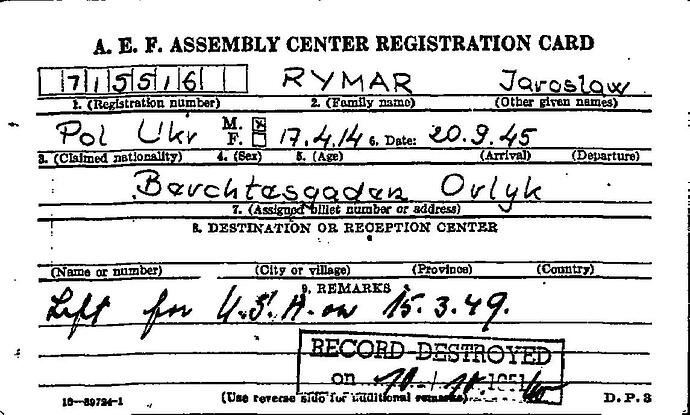 A. E. F. ASSEMBLY CENTER REGISTRATION CARD
715516 RYMAR Jaroslaw
1. (Registration number) 2. (Family name) (Other given names)
Pol Ukr M. ☒ F. ☐ 17.4.14 6. Date: 20.9.45
3. (Claimed nationality) 4. (Sex) 5. (Age) (Arrival) (Departure)
Berchtesgaden Orlyk
7. (Assigned billet number or address)
8. DESTINATION OR RECEPTION CENTER
(Name or number) (City or village) (Province) (Country)
9. REMARKS
Left for U.S.A. on 15.3.49.
RECORD DESTROYED
on 1951
16—39724-1 (Use reverse side for additional remarks) D.P. 3